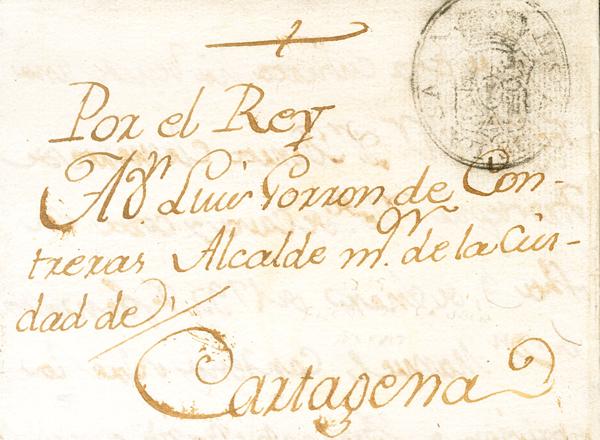 Por el Rey
A Dn. Luis Porron de Con-
treras Alcalde mr. de la Ciu-
dad de
Cartagena